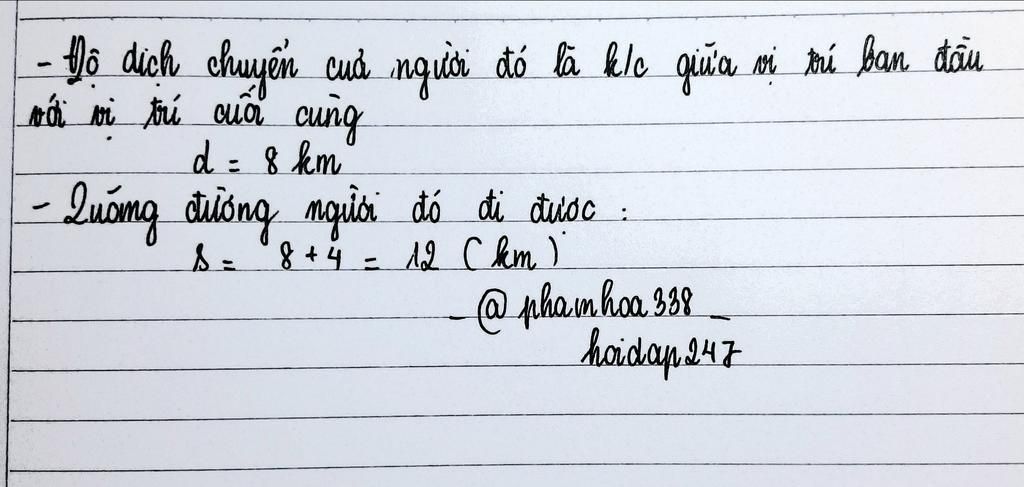 - Độ dịch chuyển của người đó là k/c giữa vị trí ban đầu
với vị trí cuối cùng
d = 8 km
- Quãng đường người đó đi được :
s = 8 + 4 = 12 (km)
- @phamhoa338 -
hoidap247